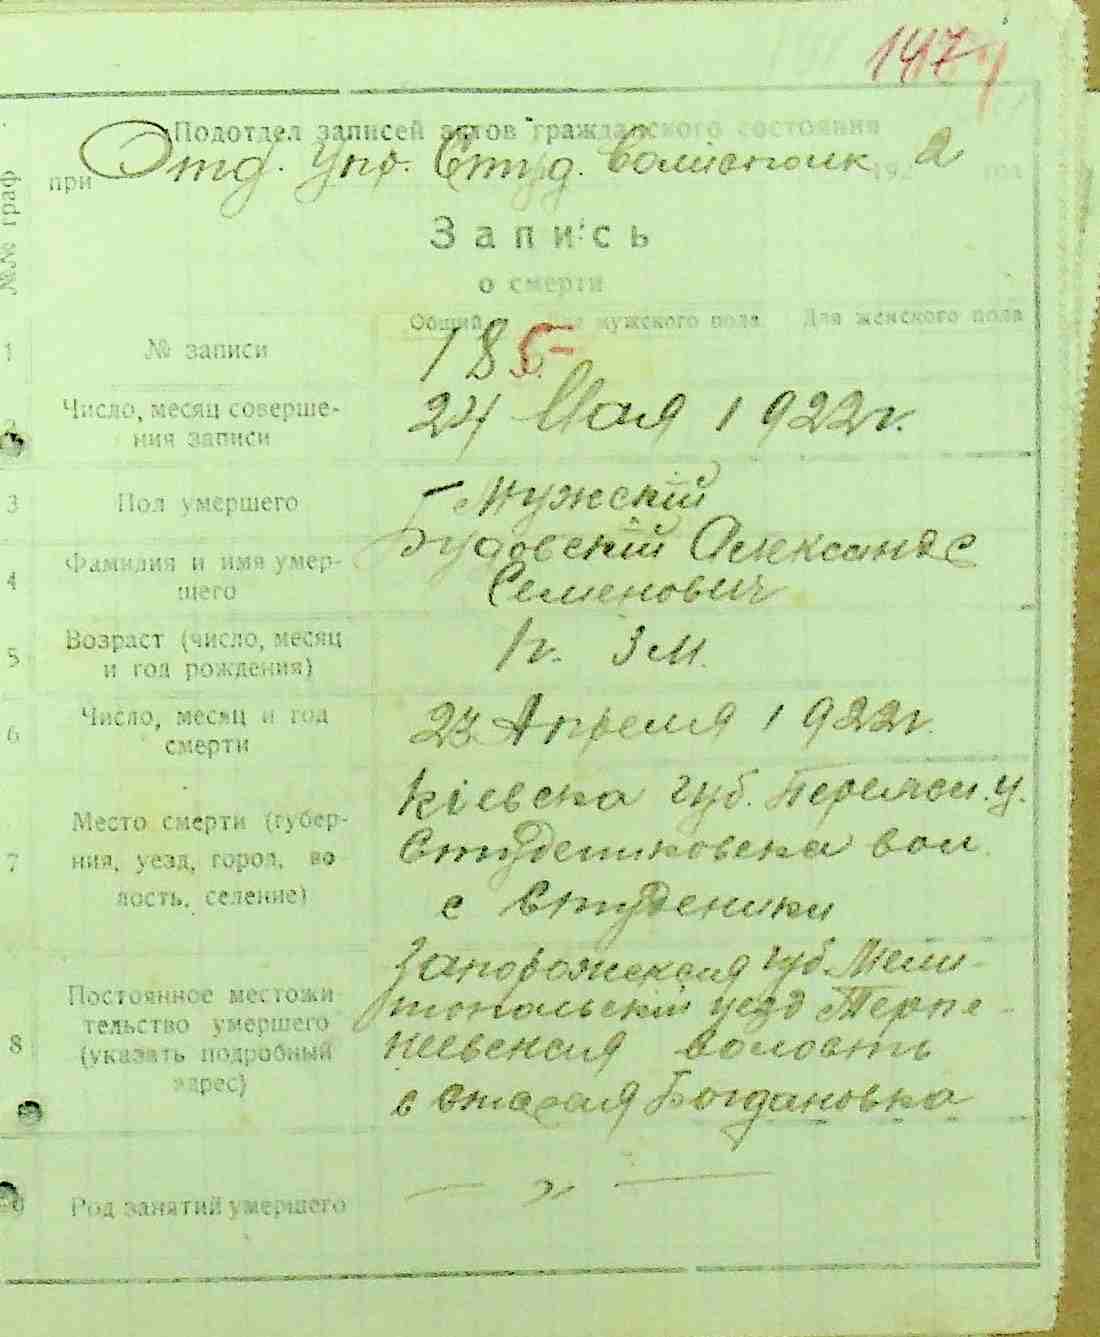 Подотдел записей актов гражданского состояния
при Отд. Упр. Студ. Волисполк 1922 год
№№ граф
Запись
о смерти
Общий Для мужского пола Для женского пола
1 № записи 185
2 Число, месяц соверше-
ния записи 24 Мая 1922 г.
3 Пол умершего Мужскій
4 Фамилия и имя умер-
шего Будовскій Александр
Семенович
5 Возраст (число, месяц
и год рождения) 1 г. 3 м.
6 Число, месяц и год
смерти 23 Апреля 1922 г.
7 Место смерти (губер-
ния, уезд, город, во-
лость, селение) Кіевска губ. Переясл. у.
Студениковска вол.
с Студеники
8 Постоянное местожи-
тельство умершего
(указать подробный
адрес) Запорожская губ. Мели-
топольскій уезд Терпе-
неевская волость
с Старая Богдановка
Род занятий умершего — " —